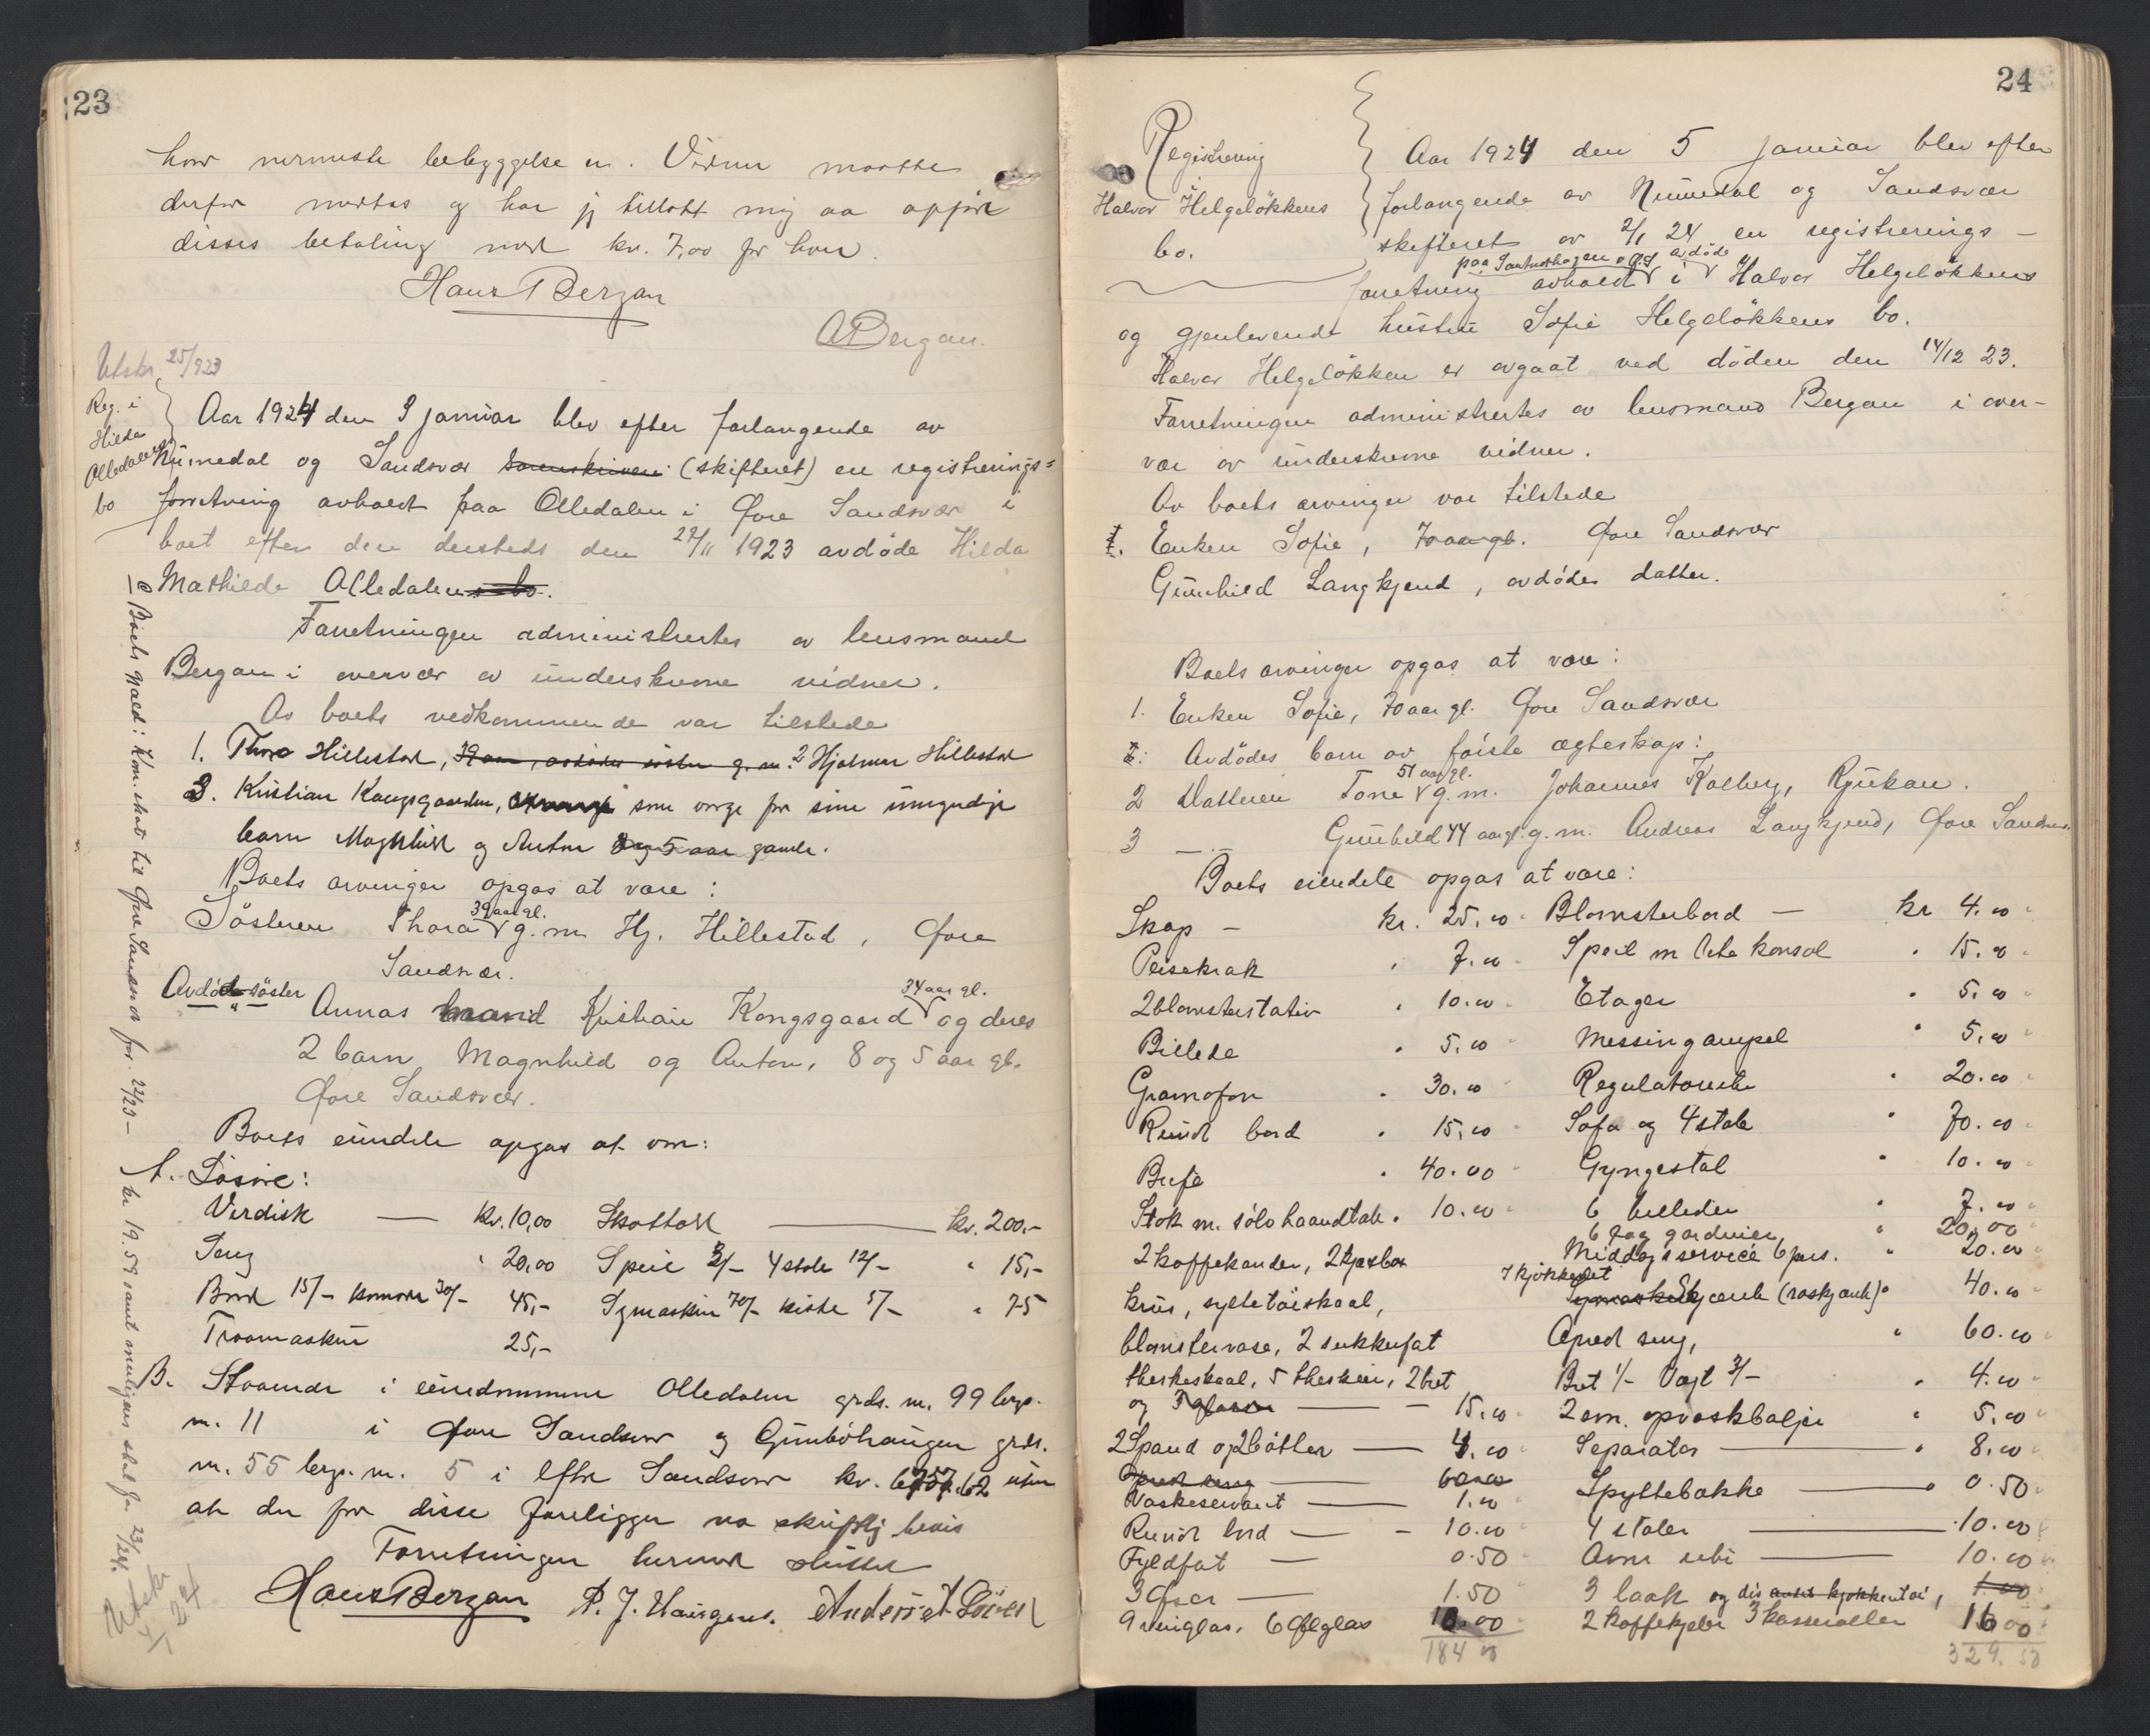 23
hvor nermeste bebyggelse er. Vidner maatte
derfor mødes og har jeg tillatt mig aa opføre
disses betaling med kr. 7,00 for hver.
Hans Bergan
ABergan.
Utskr. 25/1 923
Reg. i
Hilda
Olledalens
bo
Aar 1924 den 3 januar blev efter forlangende av
Numedal og Sandsvær Sorenskriveri (skifteret) en registrerings=
forretning avholdt paa Olledalen i Øvre Sandsvær i
boet efter den dersteds den 22/11 1923 avdøde Hilda
Mathilde Olledalens bo.
Forretningen administrertes av lensmand
Bergan i overvær av underskrevne vidner.
Av boets vedkommende var tilstede
1. Thora Hillestad, 39 aar, avdødes søster g. m. 2 Hjalmar Hillestad
3. Kristian Kongsgaarden, som verge for sine umyndige
barn Magnhild og Anton 8 og 5 aar gamle.
Boets arvinger opgas at være :
Søsteren Thora 39 aar gl. g. m. Hj. Hillestad, Øvre
Sandsvær.
Avdøde søster
Annas mand Kristian Kongsgaard 34 aar gl. og deres
2 barn Magnhild og Anton, 8 og 5 aar gl.
Øvre Sandsvær.
Boets eiendele opgas at være:
A. Løsøre:
Verdisk — kr. 10,00 Skottøk — kr. 200,-
Seng " 20,00 Speil 3/- 4 stole 12/- " 15,-
Bord 15/- komode 30/- 45,- Symaskin 70/- kiste 5/- " 75
Traamaskin 25,-
B. Staaende i eiendommene Olledalen grds. nr. 99 brgs.
nr. 11 i Øvre Sandsvær og Gunbøhaugen grds.
nr. 55 brgs. nr. 5 i Eftre Sandsvær kr. 6757,62 uten
at der for disse foreligger no skriftlig bevis
Forretningen hermed sluttet
Hans Bergan P. J. Haugens.
Boets gjæld: Kom. skat til Øvre Sandsvær for 22/23 — kr 19.59 samt muligens skat for 23/24.
Utskr
4/1 24
24
Registrering
Halvor Helgeløkkens
bo.
Aar 1924 den 5 januar blev efter
forlangende av Numedal og Sandsvær
skifteret av 2/1 24 en registrerings –
forretning avholdt paa i avdøde Halvor Helgeløkkens
og gjenlevende hustru Sofie Helgeløkkens bo.
Halvor Helgeløkken er avgaat ved døden den 14/12 23.
Forretningen administrertes av lensmand Bergan i over-
vær av underskrevne vidner.
Av boets arvinger var tilstede
1. Enken Sofie, 70 aar gl. Øvre Sandsvær
Gunhild Langkjend, avdødes datter.
Boets arvinger opgas at være :
1. Enken Sofie, 70 aar gl. Øvre Sandsvær
2. Avdødes barn av første ægteskap :
2 Datteren Tone 51 aar gl. g. m. Johannes Kalberg, Rjukan.
3 —"— Gunhild 44 aar gl. g. m. Andreas Langkjend, Øvre Sandsv.
Boets eiendele opgas at være :
Skap – kr. 25.00 Blomsterbord — kr 4.00
Peisekrak " 7.00 Speil m lite konsol " 15.00
2 blomsterstativ " 10.00 Etager " 5.00
Billede " 5.00 Messingampel " 5.00
Gramofon " 30.00 Regulatorur " 20.00
Rundt bord " 15.00 Sofa og 4 stole " 70.00
Bufe " 40.00 Gyngestol " 10.00
Stok m. sølvhaandtak " 10.00 6 billeder " 7.00
6 fag gardiner " 20.00
2 kaffekander, 2 Middagsservice 6 pers. " 20.00
I kjøkkenet
krus, syltetøiskaal, Skjænk (raskjænk) " 40.00
blomstervase, 2 sukkerfat Opred seng, " 60.00
theskeskaal, 5 theskeer, 2 bret Bret 1/- Vegt 3/- " 4.00
og 3 glasse — 15.00 2 em. opvaskbaljer " 5.00
2 Spand og 2 bøtter — 4.00 Separator — " 8.00
Opred seng — 60.00
Vaskeservant — 1.00 Spyttebakke — " 0.50
Rundt bord — 10.00 4 stoler — 10.00
Fyldfat — 0.50 — 10.00
3 Øser — 1.50 3 laak og div. kjøkkentøi, 1.00
9 vinglas, 6 ølglas 10.00 2 kaffekjeler 3 kasseroller 16.00
184 00 329.50